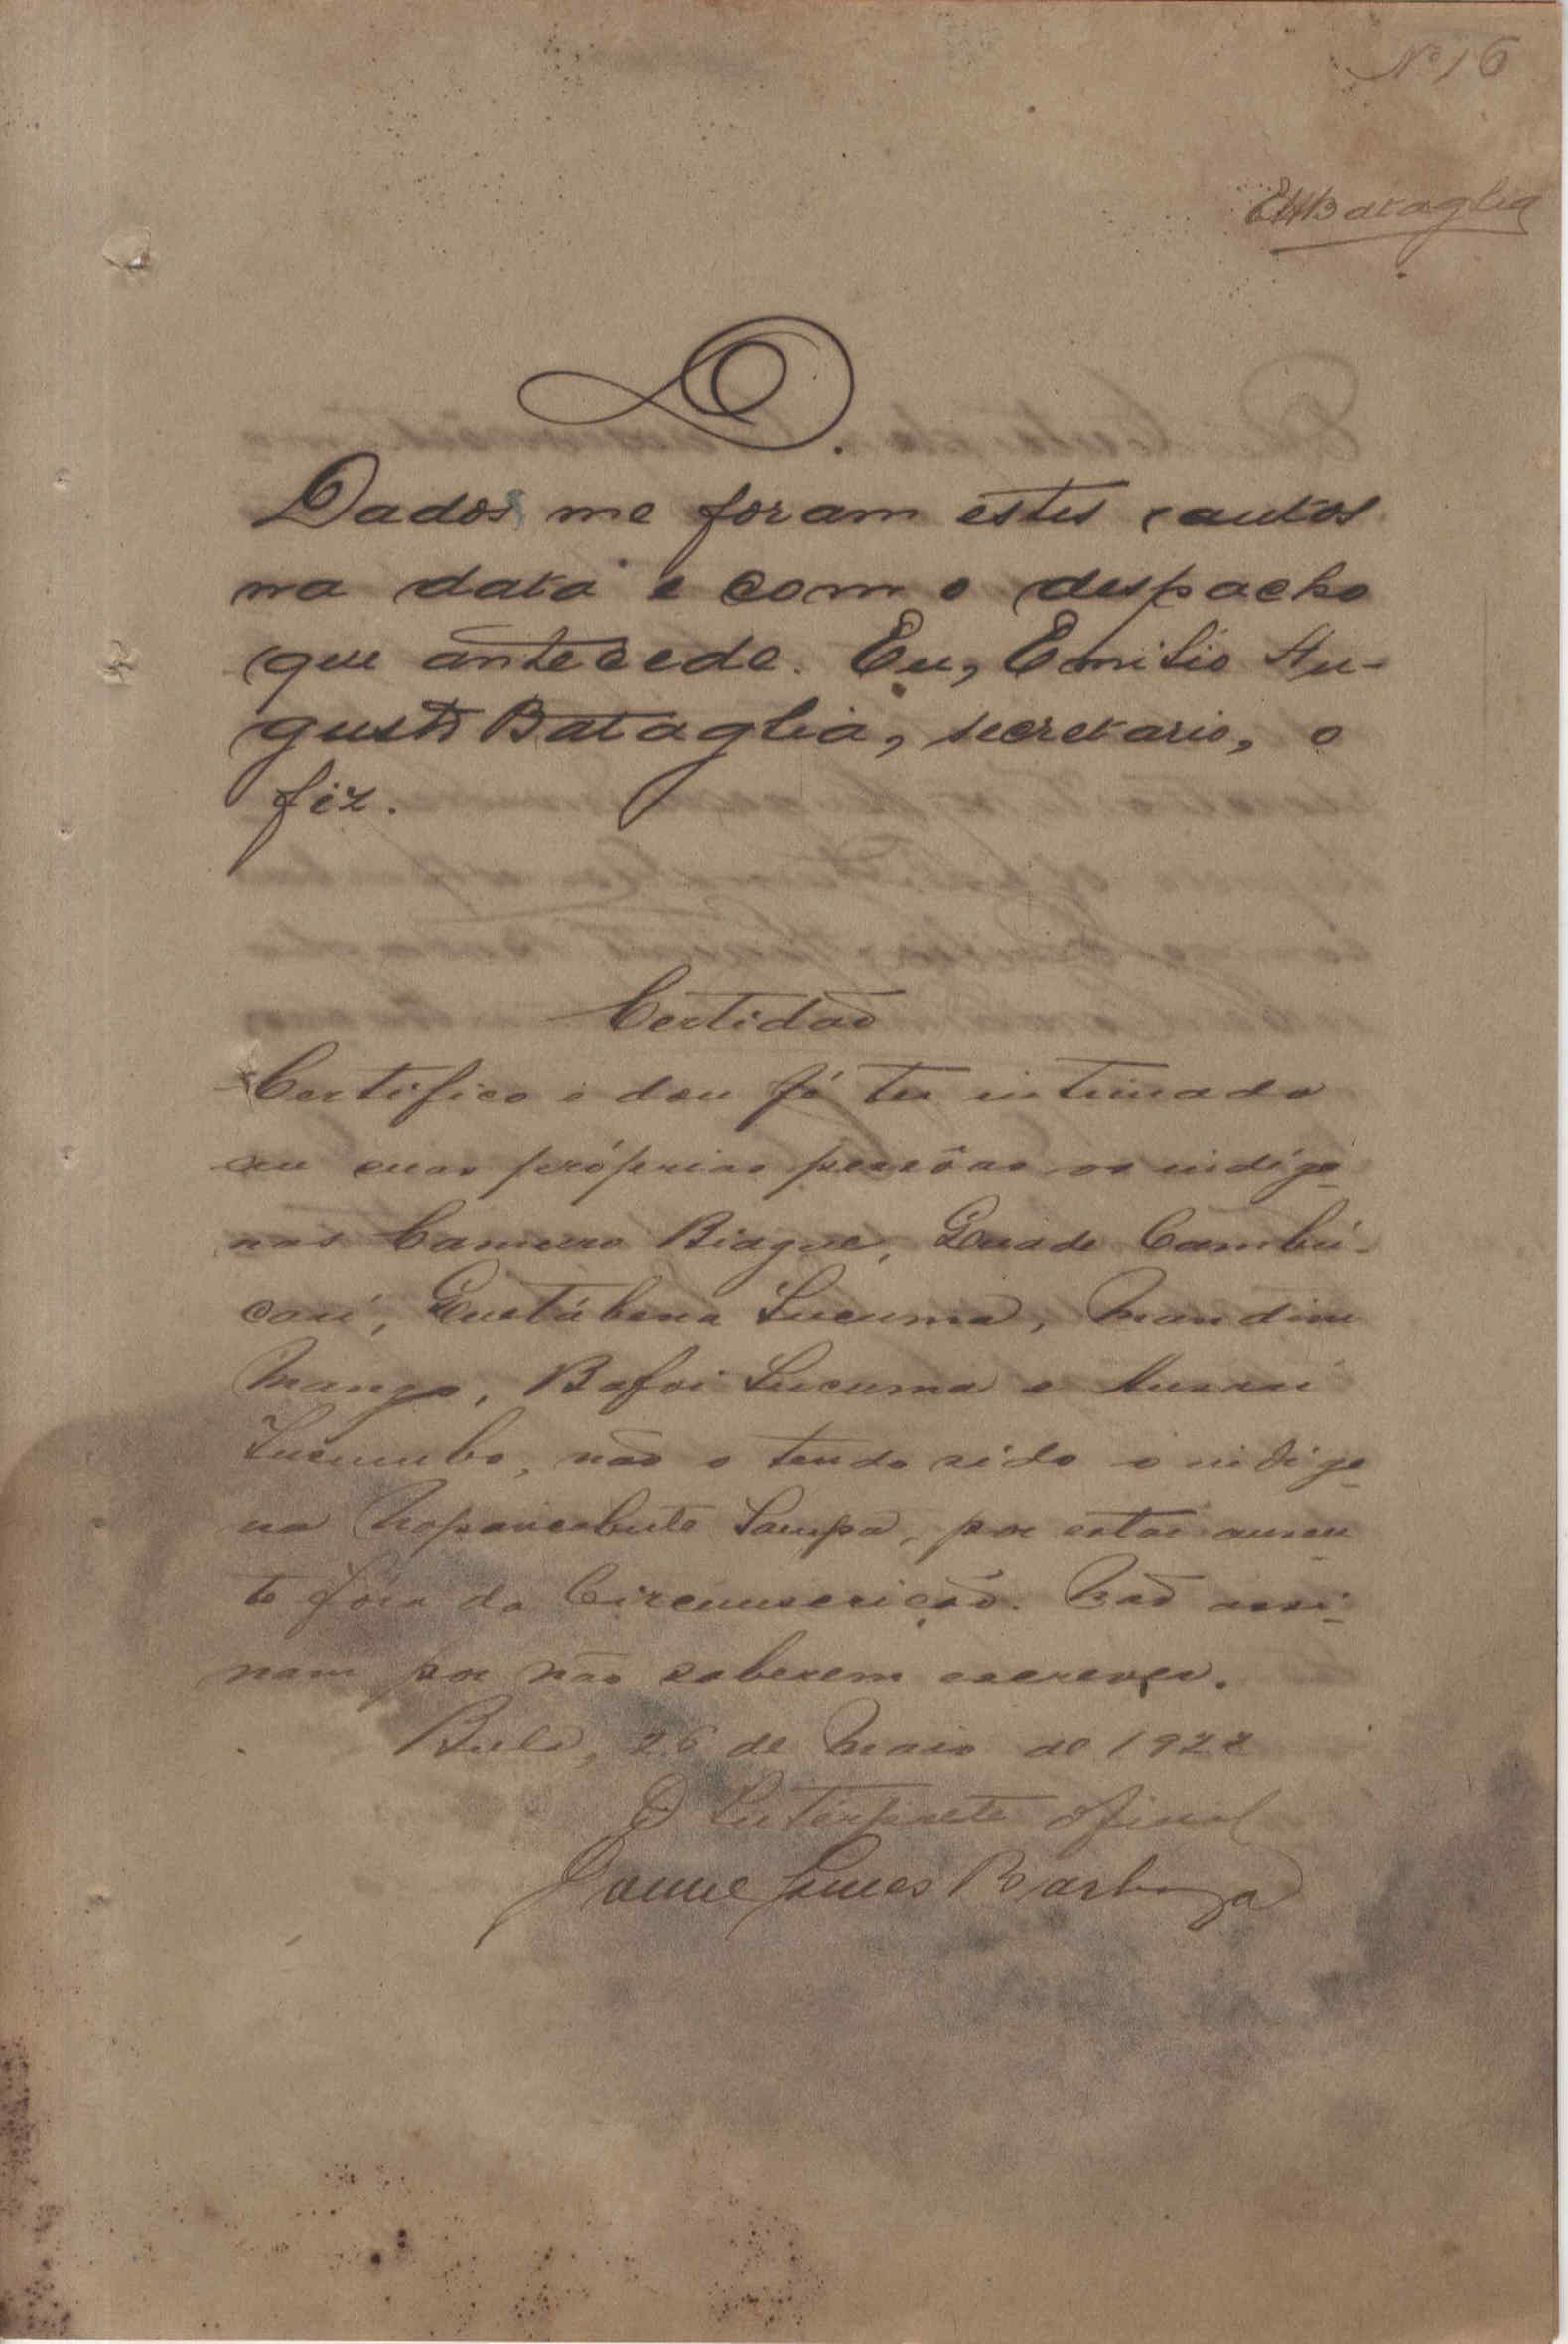 Nº 16
EABataglia
D.
Dados me foram estes autos
na data e com o despacho
que antecede. Eu, Emilio Au-
gusto Bataglia, secretario, o
fiz.
Certidão
Certifico e dou fé ter intimado
em suas próprias pessôas os indige-
nas Cameseo Biague, Quade Cambú-
cari, Quetábena Lucuma, Mandim
Mango, Bafoi Lucuma e
Lucumbo, não o tendo sido o indige-
na Sampa, por estar ausen-
te fóra da Circunscrição. Não assi-
nam por não saberem escrever.
Bula, 26 de Maio de 1922
O Interprete oficial
Jaime Gomes Barboza